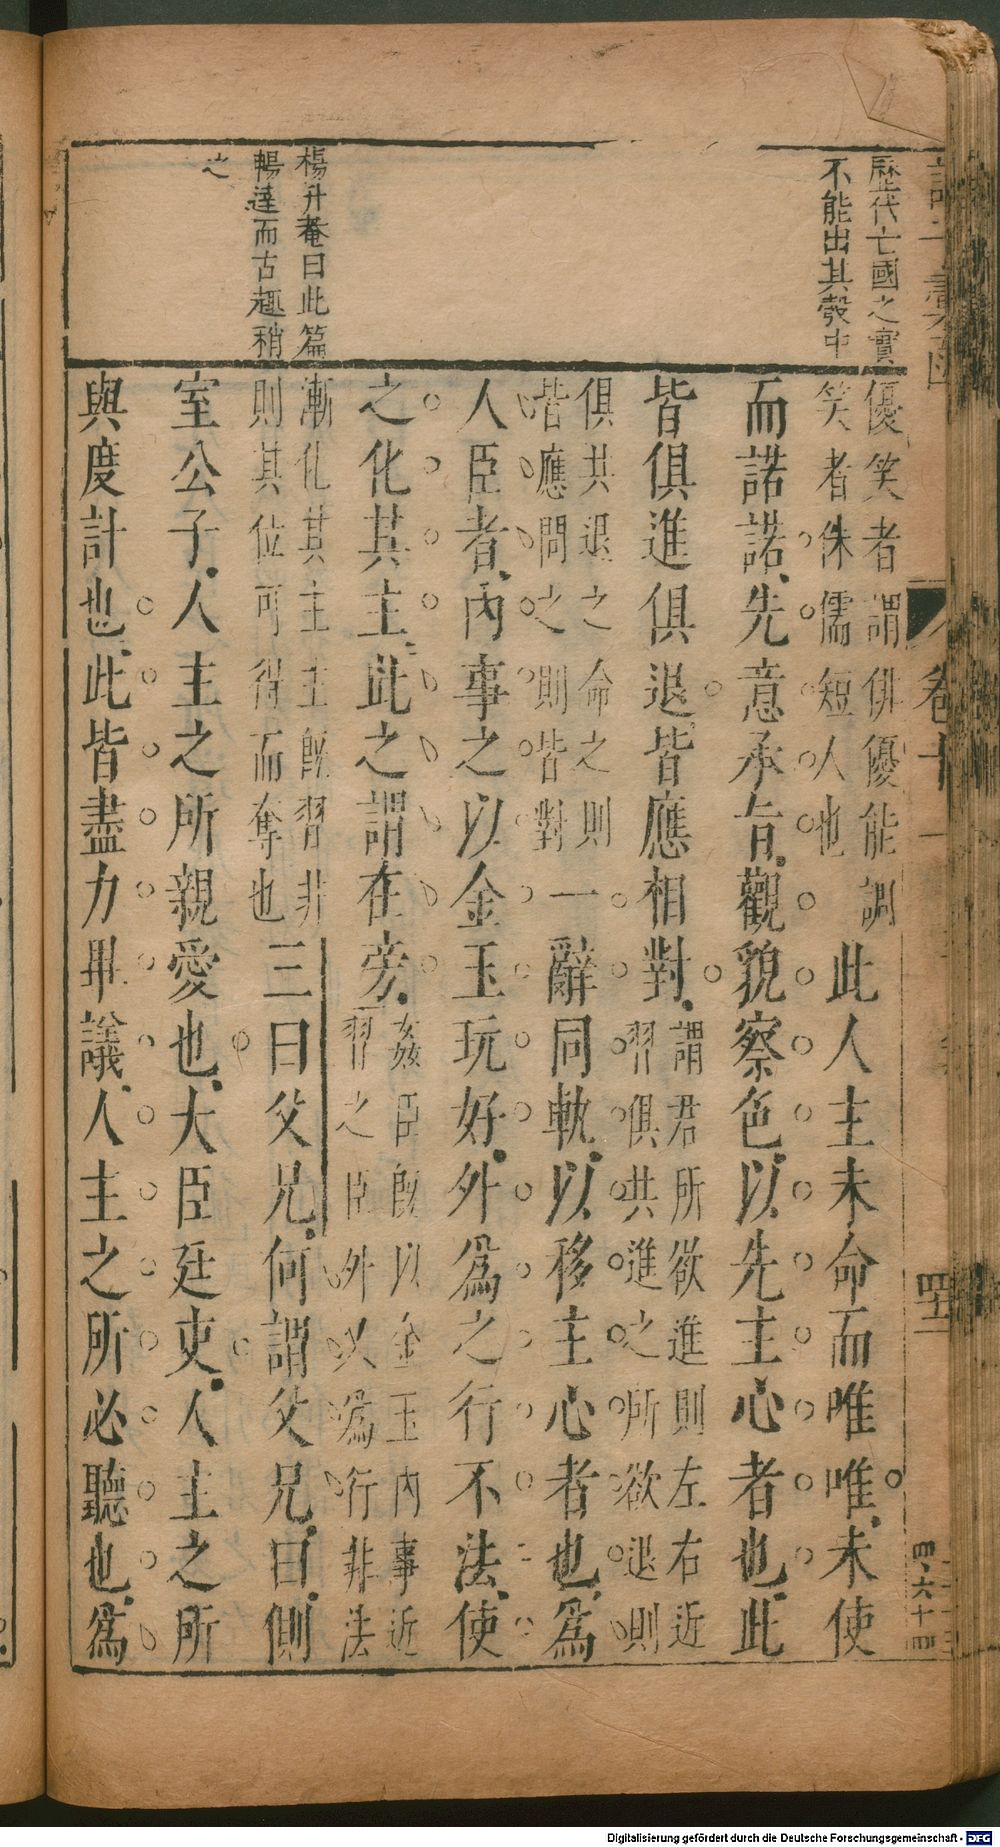 歷代亡國之實
不能出其彀中
楊升菴曰此篇
暢達而古趣稍
之
卷十
優笑者謂俳優能調
笑者侏儒短人也
此人主未命而唯唯未使
而諾諾先意承旨觀貌察色以先主心者也此
皆俱進俱退皆應相對
謂君所欲進則左右近
習俱共進之所欲退則
俱共退之命之則
皆應問之則皆對
一辭同軌以移主心者也為
人臣者內事之以金玉玩好外為之行不法使
之化其主此之謂在旁
姦臣既以金玉內事近
習之臣外以為行非法
漸化其主主既習非
則其位可得而奪也
三曰父兄何謂父兄曰側
室公子人主之所親愛也大臣廷吏人主之所
與度計也此皆盡力畢議人主之所必聽也為
Digitalisierung gefördert durch die Deutsche Forschungsgemeinschaft - DFG